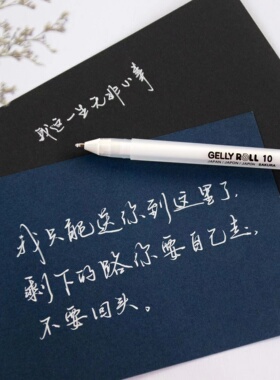 我这一生无非小事
GELLY ROLL 10
JAPAN / JAPON / JAPÓN • SAKURA
我只能送你到这里了,
剩下的路你要自己走,
不要回头。